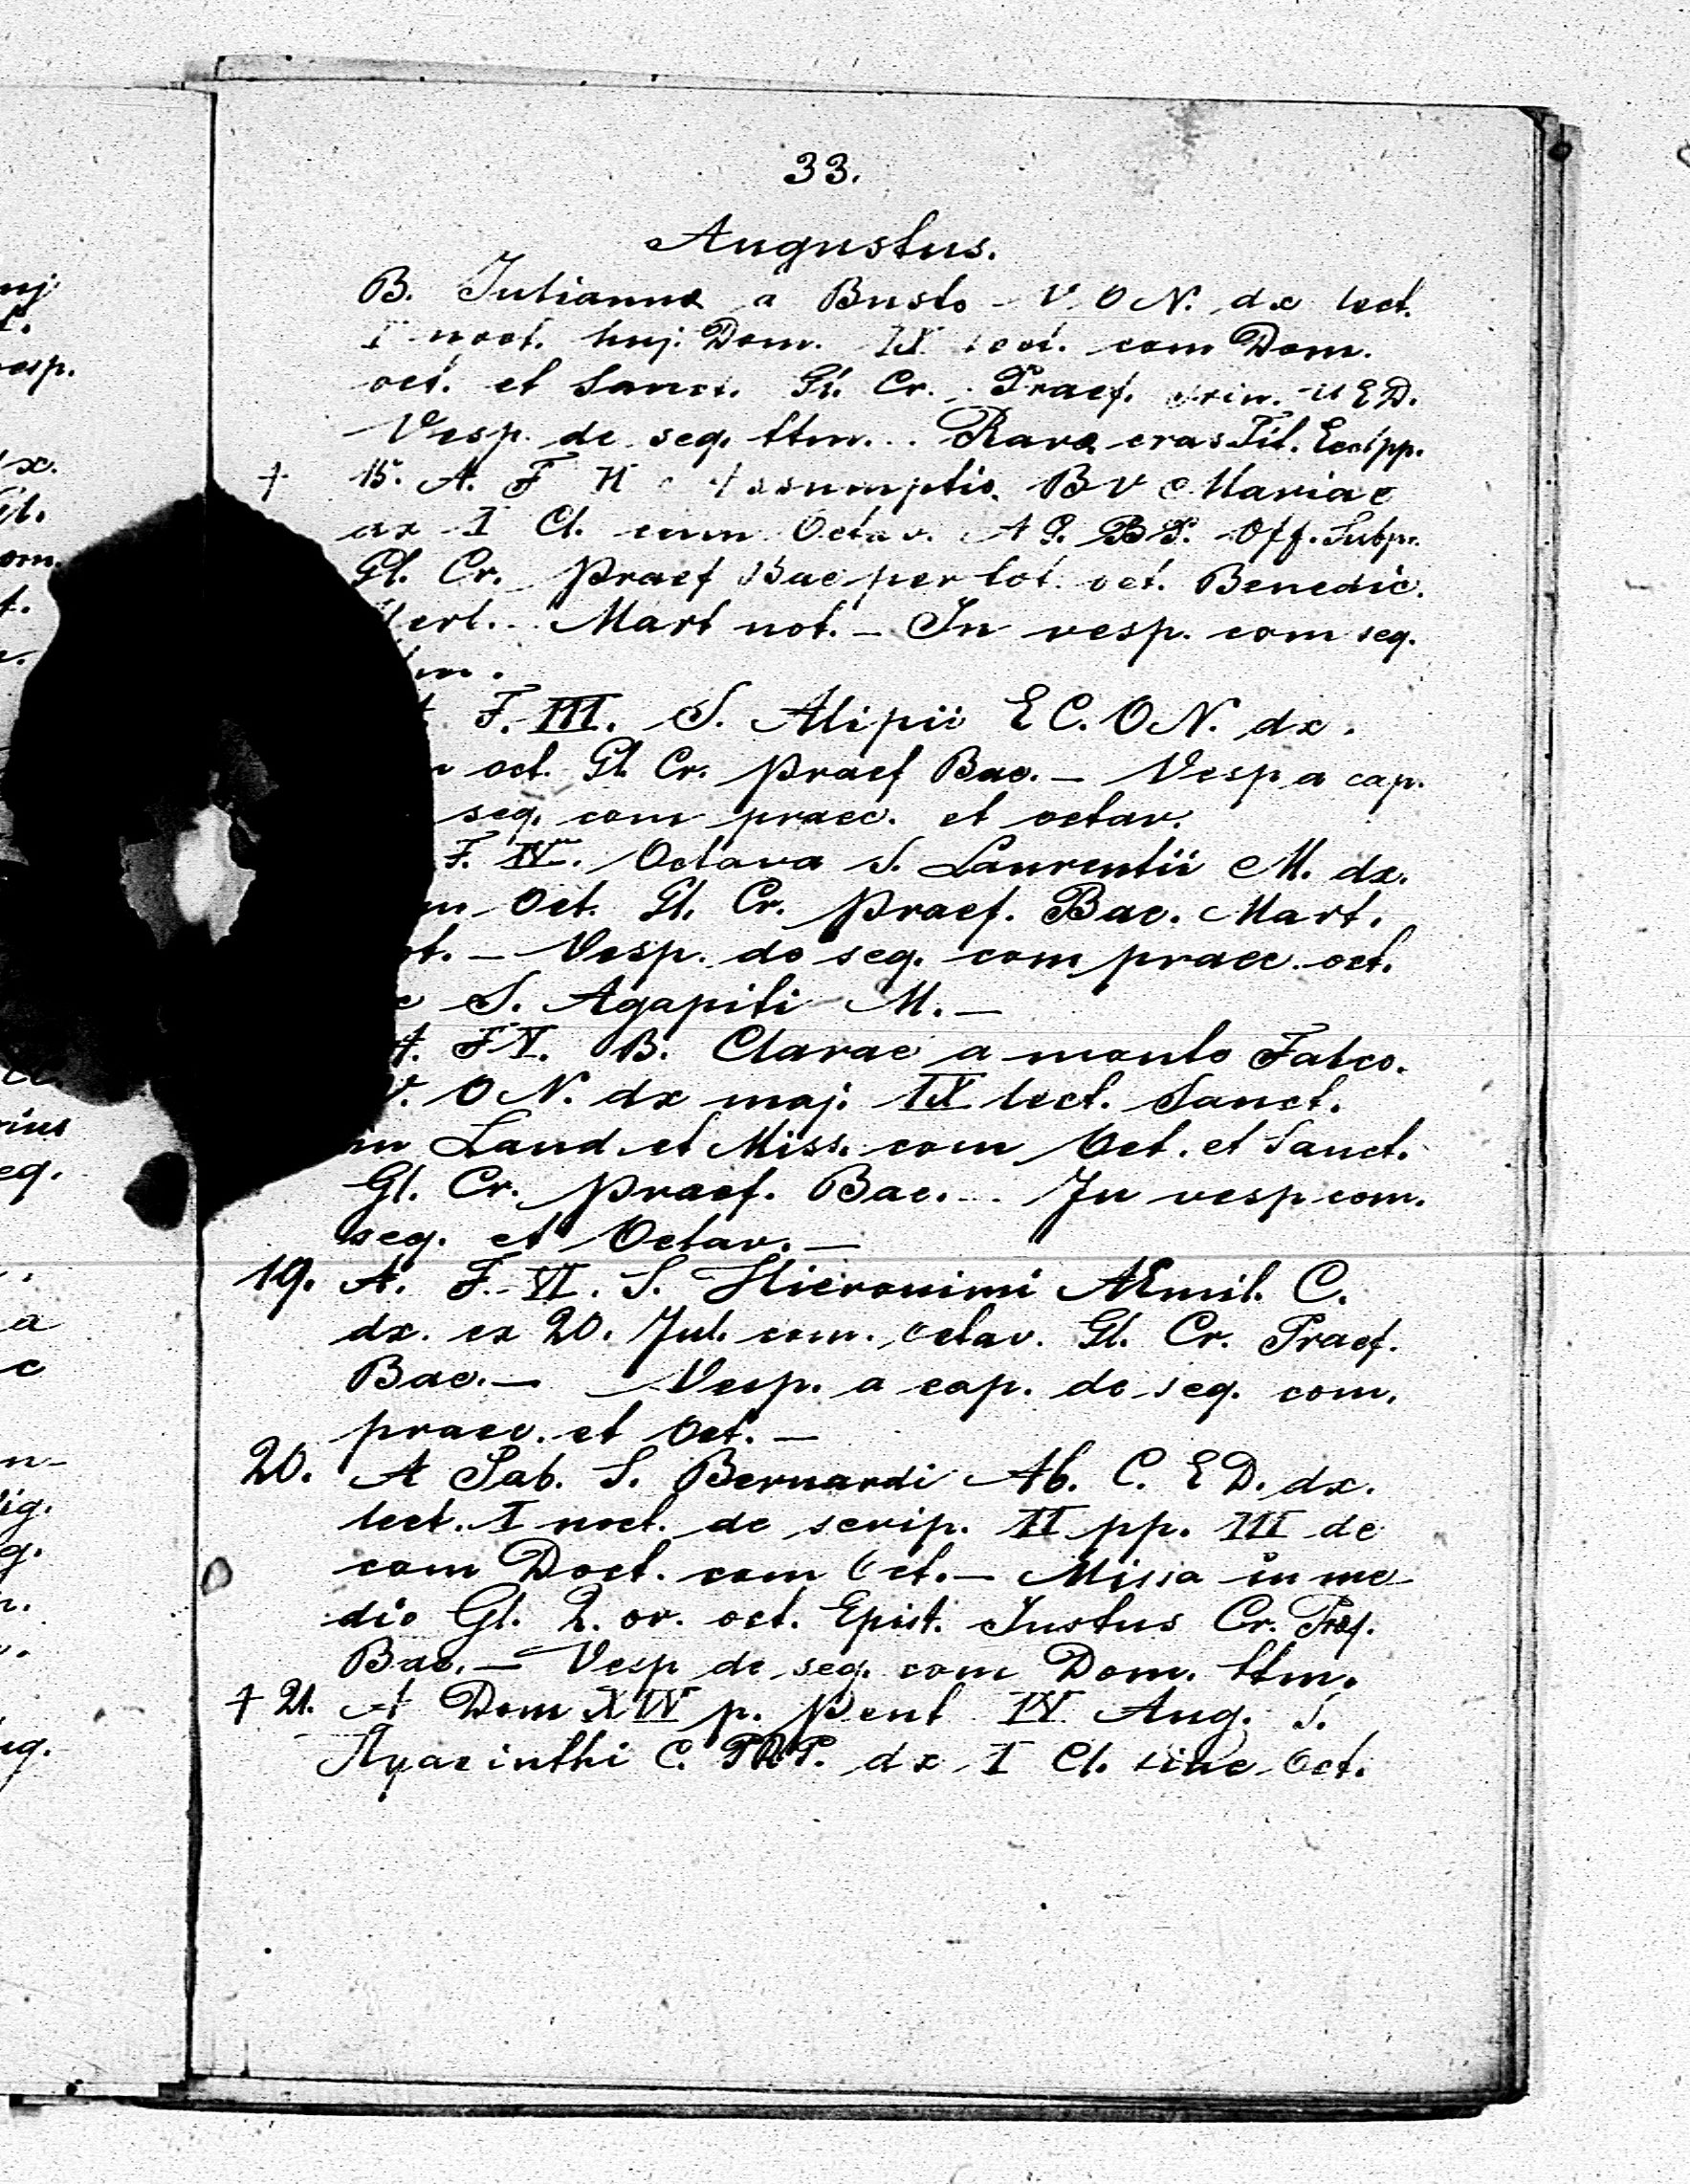 33.
Augustus.
B. Julianna a Busto - V O N. dx lect.
I noct. huj. Dom. IX lect. com Dom.
oct. et Sanct. Gl. Cr. Praef. trin. -U E D.
Vesp. de seq. ttm... Rava cras Tit. Eccl pp.
+ 15. A. F II Assumptio B V Mariae
dx I Cl. cum Octav. A G. B P. Off. Subpr.
Gl. Cr. Praef Bae per tot. oct. Benedic.
erl. - Mart not. - In vesp. com seq.
F. III. S. Alipii E C. O N. dx.
oct. Gl. Cr. Praef Bae. - Vesp a cap.
seq. com praec. et octav.
F. IV. Octava S. Laurentii M. dx.
Oct. Gl. Cr. Praef. Bae. Mart.
ot. - Vesp. de seq. com praec. oct.
S. Agapiti M. -
A. F V. B. Clarae a monte Falco.
V. O N. dx maj. IX lect. Sanct.
in Laud. et Miss. com Oct. et Sanct.
Gl. Cr. Praef. Bae. - In vesp com.
seq. et Octav. -
19. A. F. VI. S. Hieronimi AEmil. C.
dx. ex 20. Jul. com. octav. Gl. Cr. Praef.
Bae. - Vesp. a cap. de seq. com.
praec. et Oct. -
20. A Sab. S. Bernardi Ab. C. E D. dx.
lect. I noct. de scrip. II pp. III de
com Doct. com Oct. - Missa in me
dio Gl. 2. or. oct. Epist. Justus Cr. Praef.
Bae. - Vesp de seq. com Dom. ttm.
+ 21. A Dom XIV p. Pent IV Aug. S.
Hyacinthi C. P R P. dx I Cl. sine Oct.